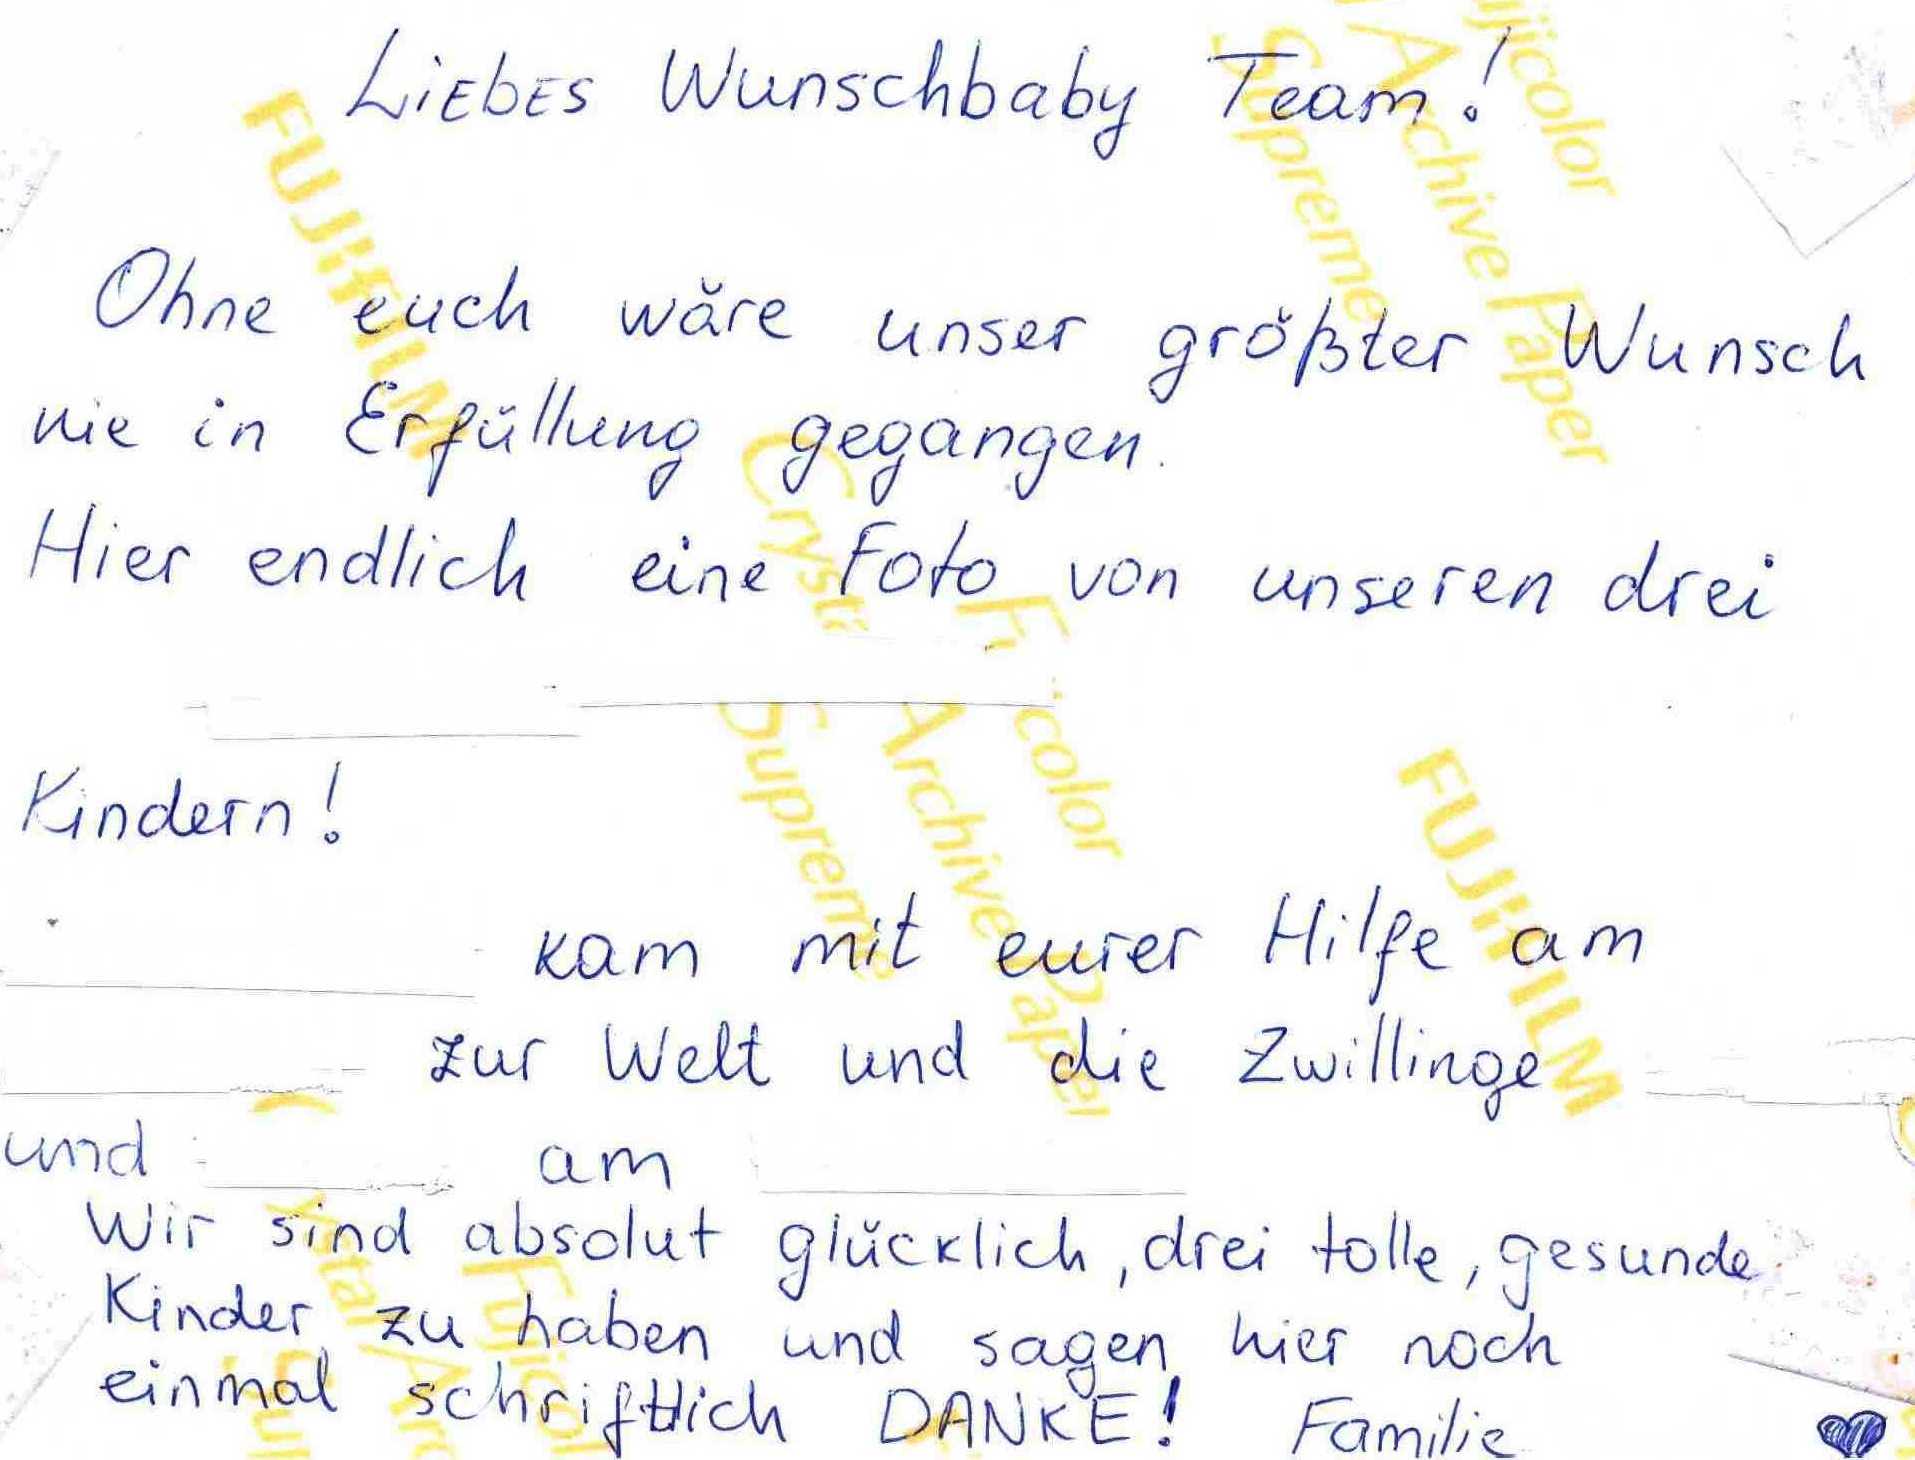 Liebes Wunschbaby Team!
Ohne euch wäre unser größter Wunsch
nie in Erfüllung gegangen.
Hier endlich eine Foto von unseren drei
Kindern!
kam mit eurer Hilfe am
zur Welt und die Zwillinge
und am
Wir sind absolut glücklich, drei tolle, gesunde
Kinder zu haben und sagen hier noch
einmal schriftlich DANKE! Familie
FUJIFILM
Fujicolor
Crystal Archive Paper
Supreme
FUJIFILM